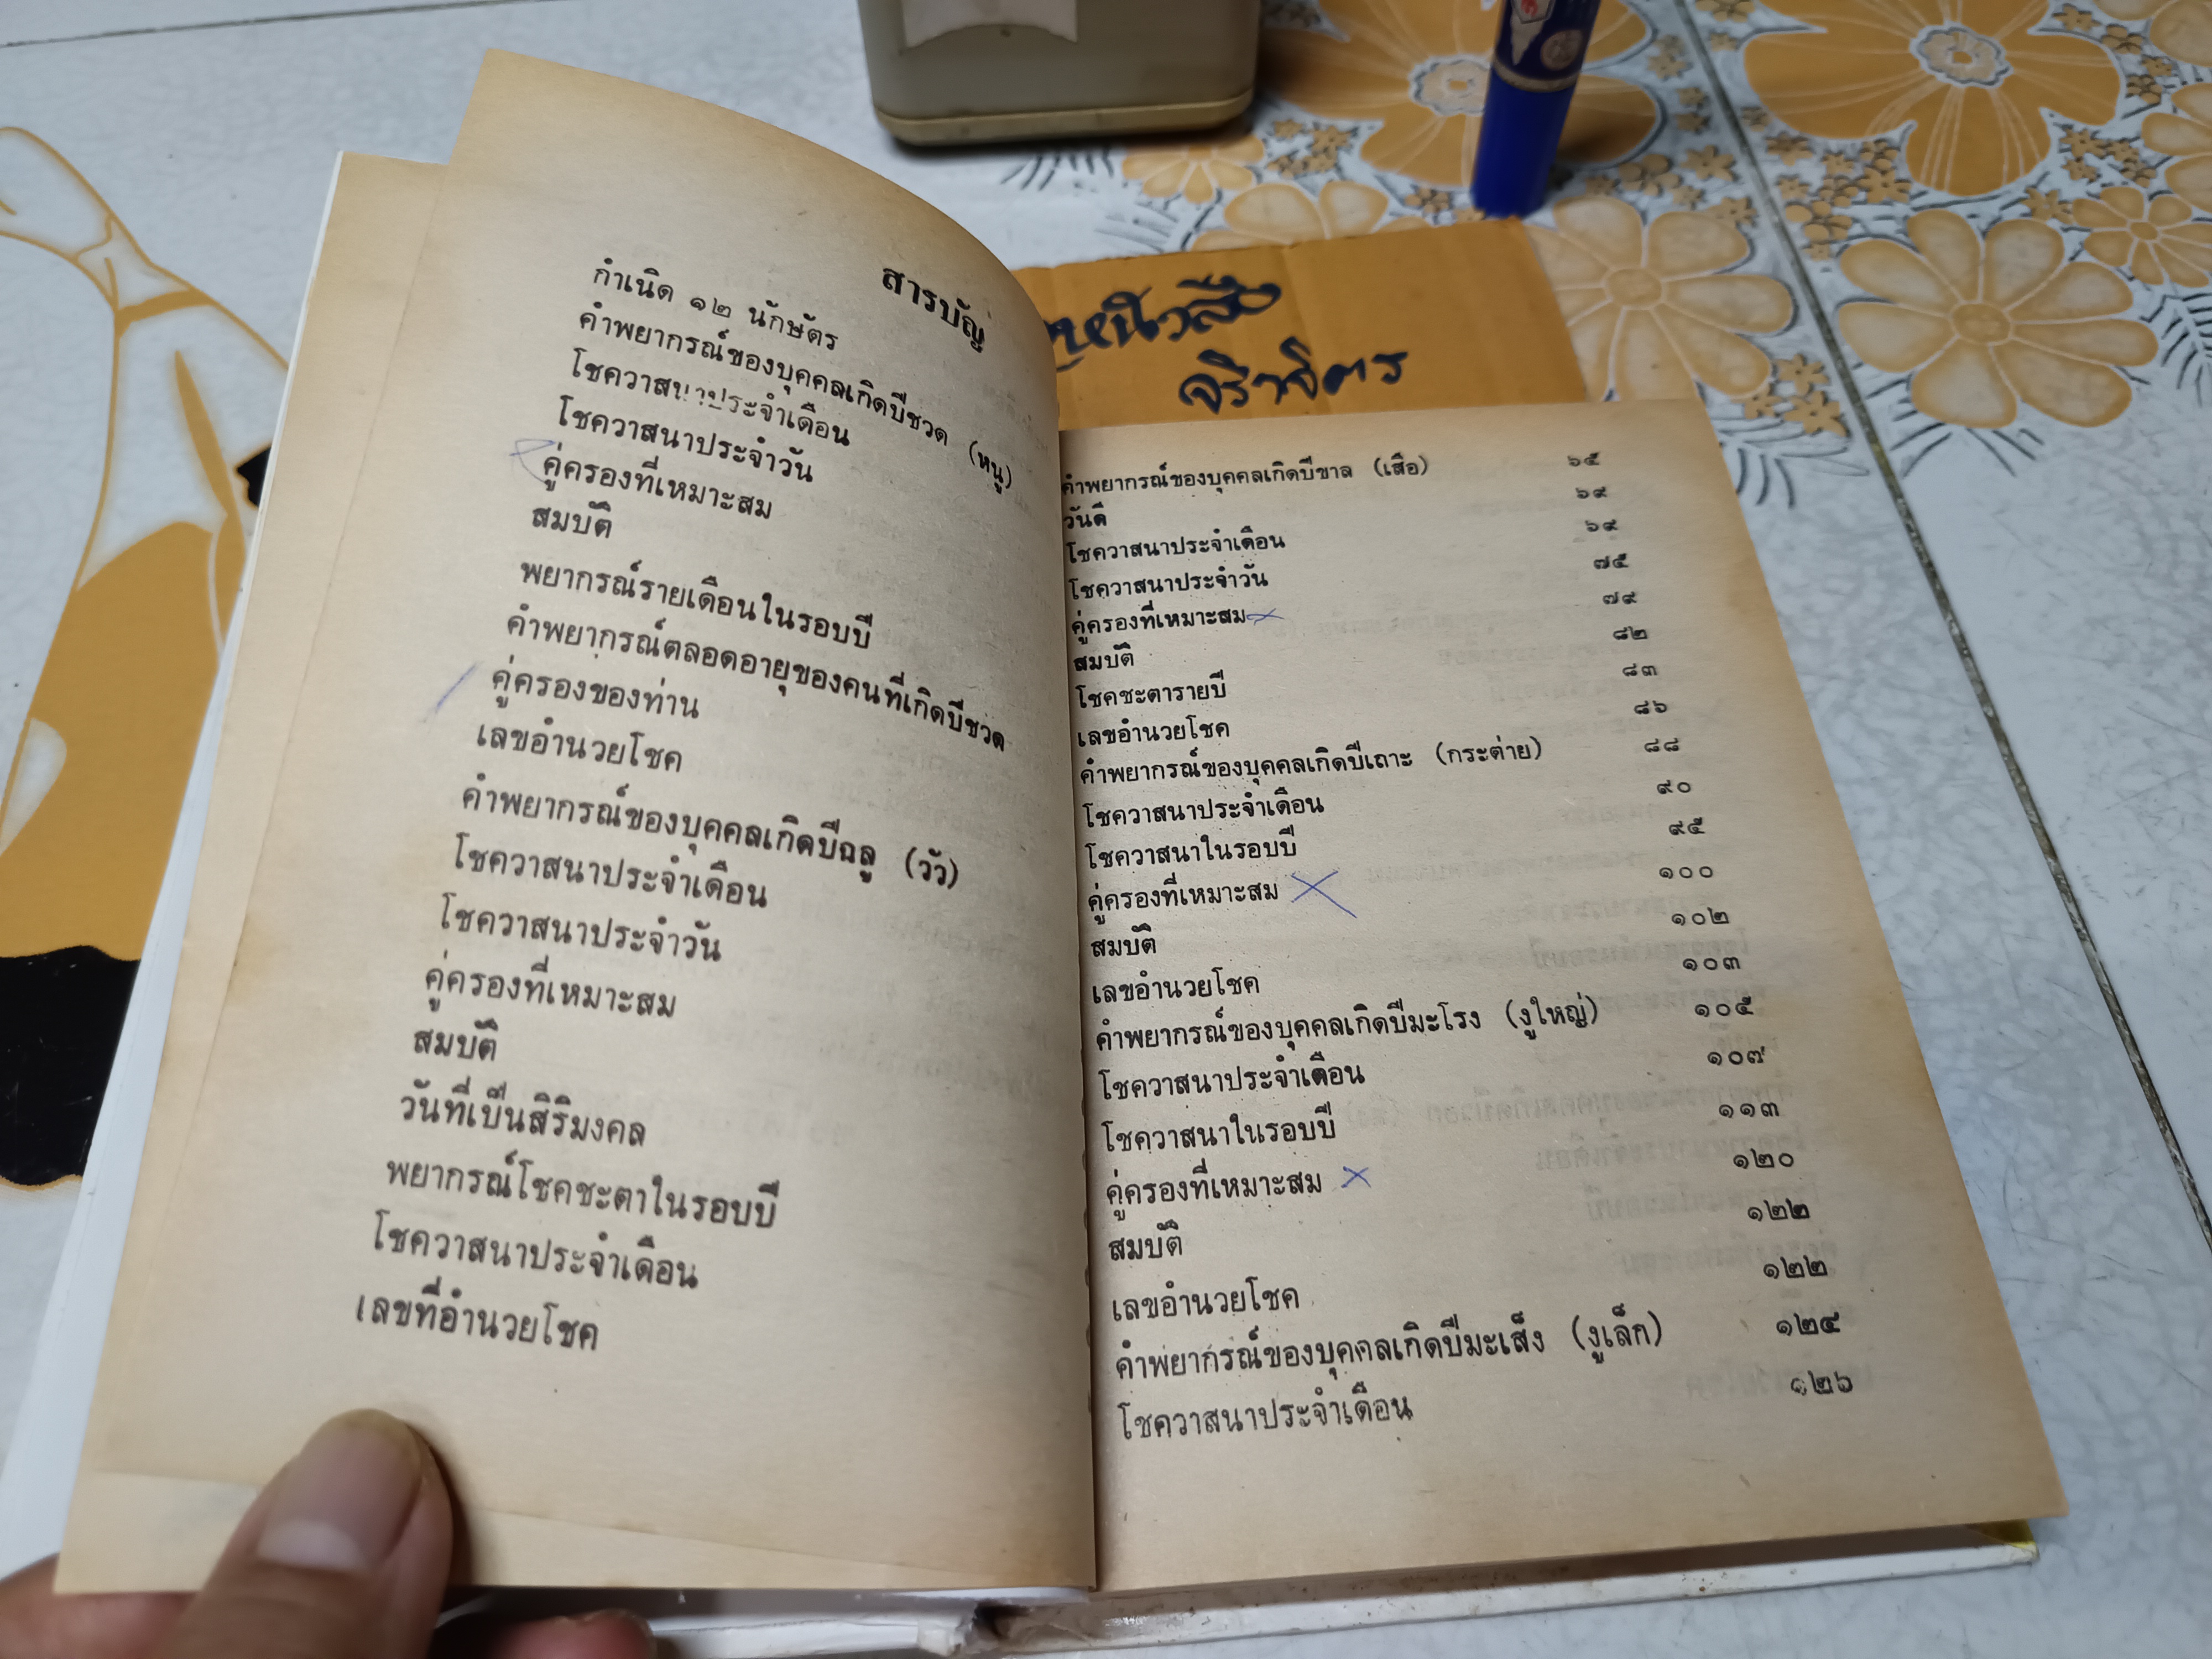 สารบัญ
กำเนิด ๑๒ นักษัตร
คำพยากรณ์ของบุคคลเกิดปีชวด (หนู)
โชควาสนาประจำเดือน
โชควาสนาประจำวัน
คู่ครองที่เหมาะสม
สมบัติ
พยากรณ์รายเดือนในรอบปี
คำพยากรณ์ตลอดอายุของคนที่เกิดปีชวด
คู่ครองของท่าน
เลขอำนวยโชค
คำพยากรณ์ของบุคคลเกิดปีฉลู (วัว)
โชควาสนาประจำเดือน
โชควาสนาประจำวัน
คู่ครองที่เหมาะสม
สมบัติ
วันที่เป็นสิริมงคล
พยากรณ์โชคชะตาในรอบปี
โชควาสนาประจำเดือน
เลขที่อำนวยโชค
คำพยากรณ์ของบุคคลเกิดปีขาล (เสือ) ๖๕
วันดี ๖๙
โชควาสนาประจำเดือน ๖๙
โชควาสนาประจำวัน ๗๕
คู่ครองที่เหมาะสม ๗๙
สมบัติ ๘๒
โชคชะตารายปี ๘๓
เลขอำนวยโชค ๘๖
คำพยากรณ์ของบุคคลเกิดปีเถาะ (กระต่าย) ๘๘
โชควาสนาประจำเดือน ๙๐
โชควาสนาในรอบปี ๙๕
คู่ครองที่เหมาะสม ๑๐๐
สมบัติ ๑๐๒
เลขอำนวยโชค ๑๐๓
คำพยากรณ์ของบุคคลเกิดปีมะโรง (งูใหญ่) ๑๐๕
โชควาสนาประจำเดือน ๑๐๗
โชควาสนาในรอบปี ๑๑๓
คู่ครองที่เหมาะสม ๑๒๐
สมบัติ ๑๒๒
เลขอำนวยโชค ๑๒๒
คำพยากรณ์ของบุคคลเกิดปีมะเส็ง (งูเล็ก) ๑๒๔
โชควาสนาประจำเดือน ๑๒๖